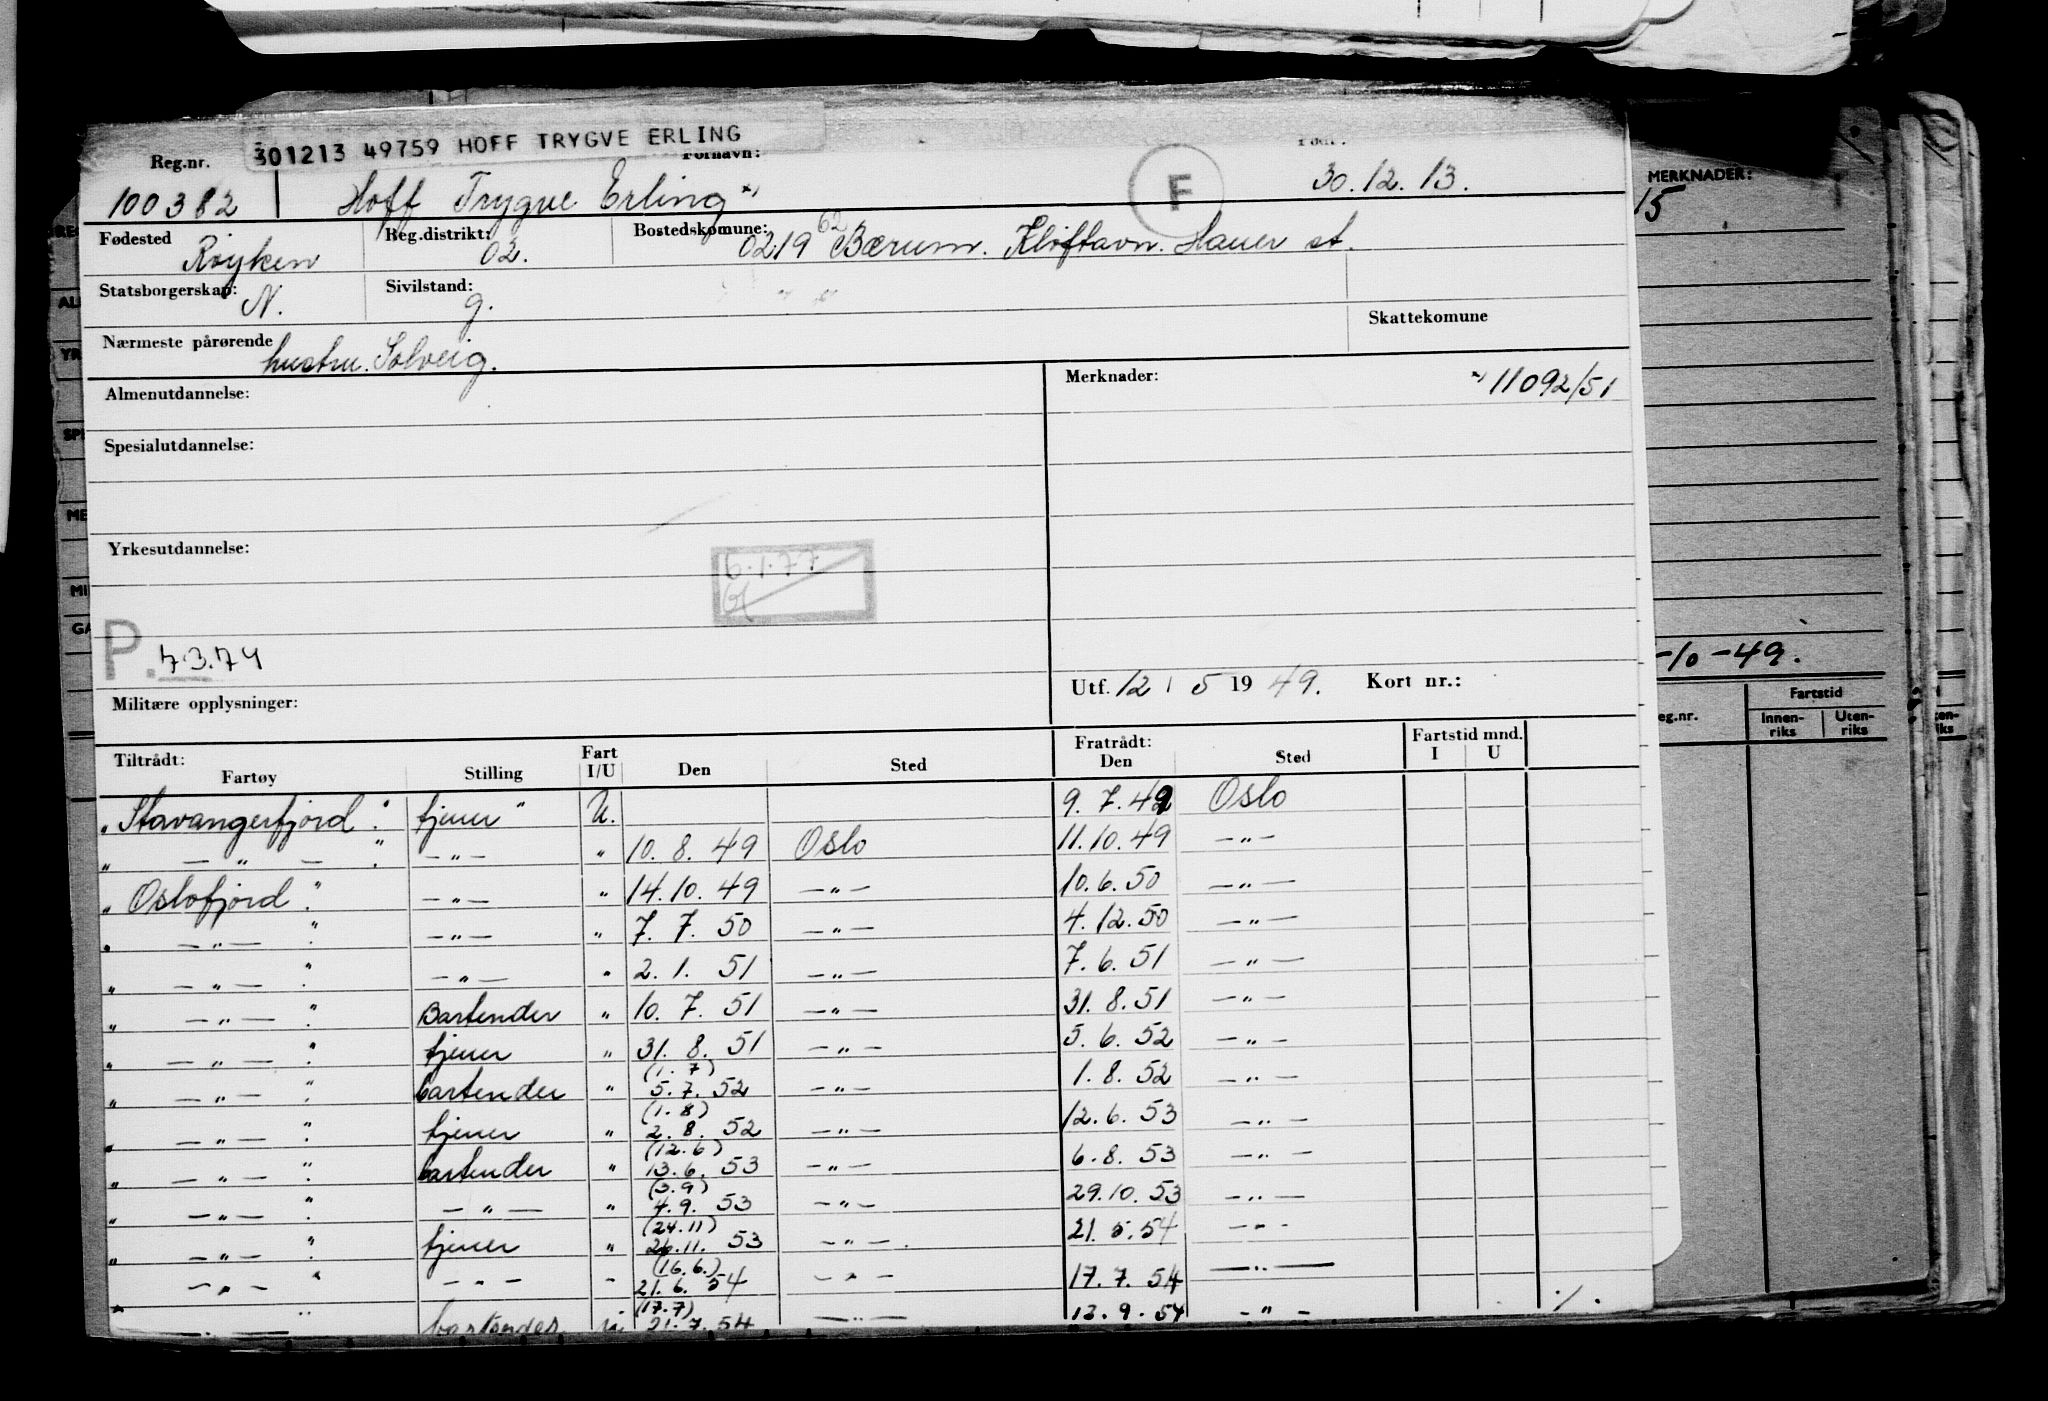 301213 49759 HOFF TRYGVE ERLING
Reg.nr. Fornavn: Født:
100382 Hoff Trygve Erling x) F 30.12.13.
Fødested Røyken Reg.distrikt: 02. Bostedskomune: 0219 62 Bærum. Kløftavn. Hauer st.
Statsborgerskap: N. Sivilstand: g.
Skattekomune
Nærmeste pårørende hustru. Solveig.
Almenutdannelse: Merknader: x) 11092/51
Spesialutdannelse:
Yrkesutdannelse: 6.1.77
P. 7.3.74
Utf. 12 / 5 19 49. Kort nr.:
Militære opplysninger:
Tiltrådt: Fratrådt: Fartstid mnd.
Fartøy Stilling Fart I/U Den Sted Den Sted I U
"Stavangerfjord". tjener" U. 9.7.49 Oslo
" — " — ". — " — " 10.8.49 Oslo 11.10.49 — " —
"Oslofjord". — " — " 14.10.49 — " — 10.6.50 — " —
" — " — ". — " — " 7.7.50 — " — 4.12.50 — " —
" — " — ". — " — " 2.1.51 — " — 7.6.51 — " —
" — " — ". Bartender " 10.7.51 — " — 31.8.51 — " —
" — " — ". tjener " 31.8.51 — " — 5.6.52 — " —
" — " — ". bartender " (1.7) 5.7.52 — " — 1.8.52 — " —
" — " — ". tjener " (1.8) 2.8.52 — " — 12.6.53 — " —
" — " — ". bartender " (12.6) 13.6.53 — " — 6.8.53 — " —
" — " — ". — " — " (3.9) 4.9.53 — " — 29.10.53 — " —
" — " — ". tjener " (24.11) 26.11.53 — " — 21.5.54 — " —
— " — " — " — " (16.6.) 21.6.54 — " — 17.7.54 — " —
" — " — " bartender U. (17.7) 21.7.54 — " — 13.9.54 — " —
./.
MERKNADER:
15
-10-49.
Fartstid
eg.nr. Innenriks Utenriks